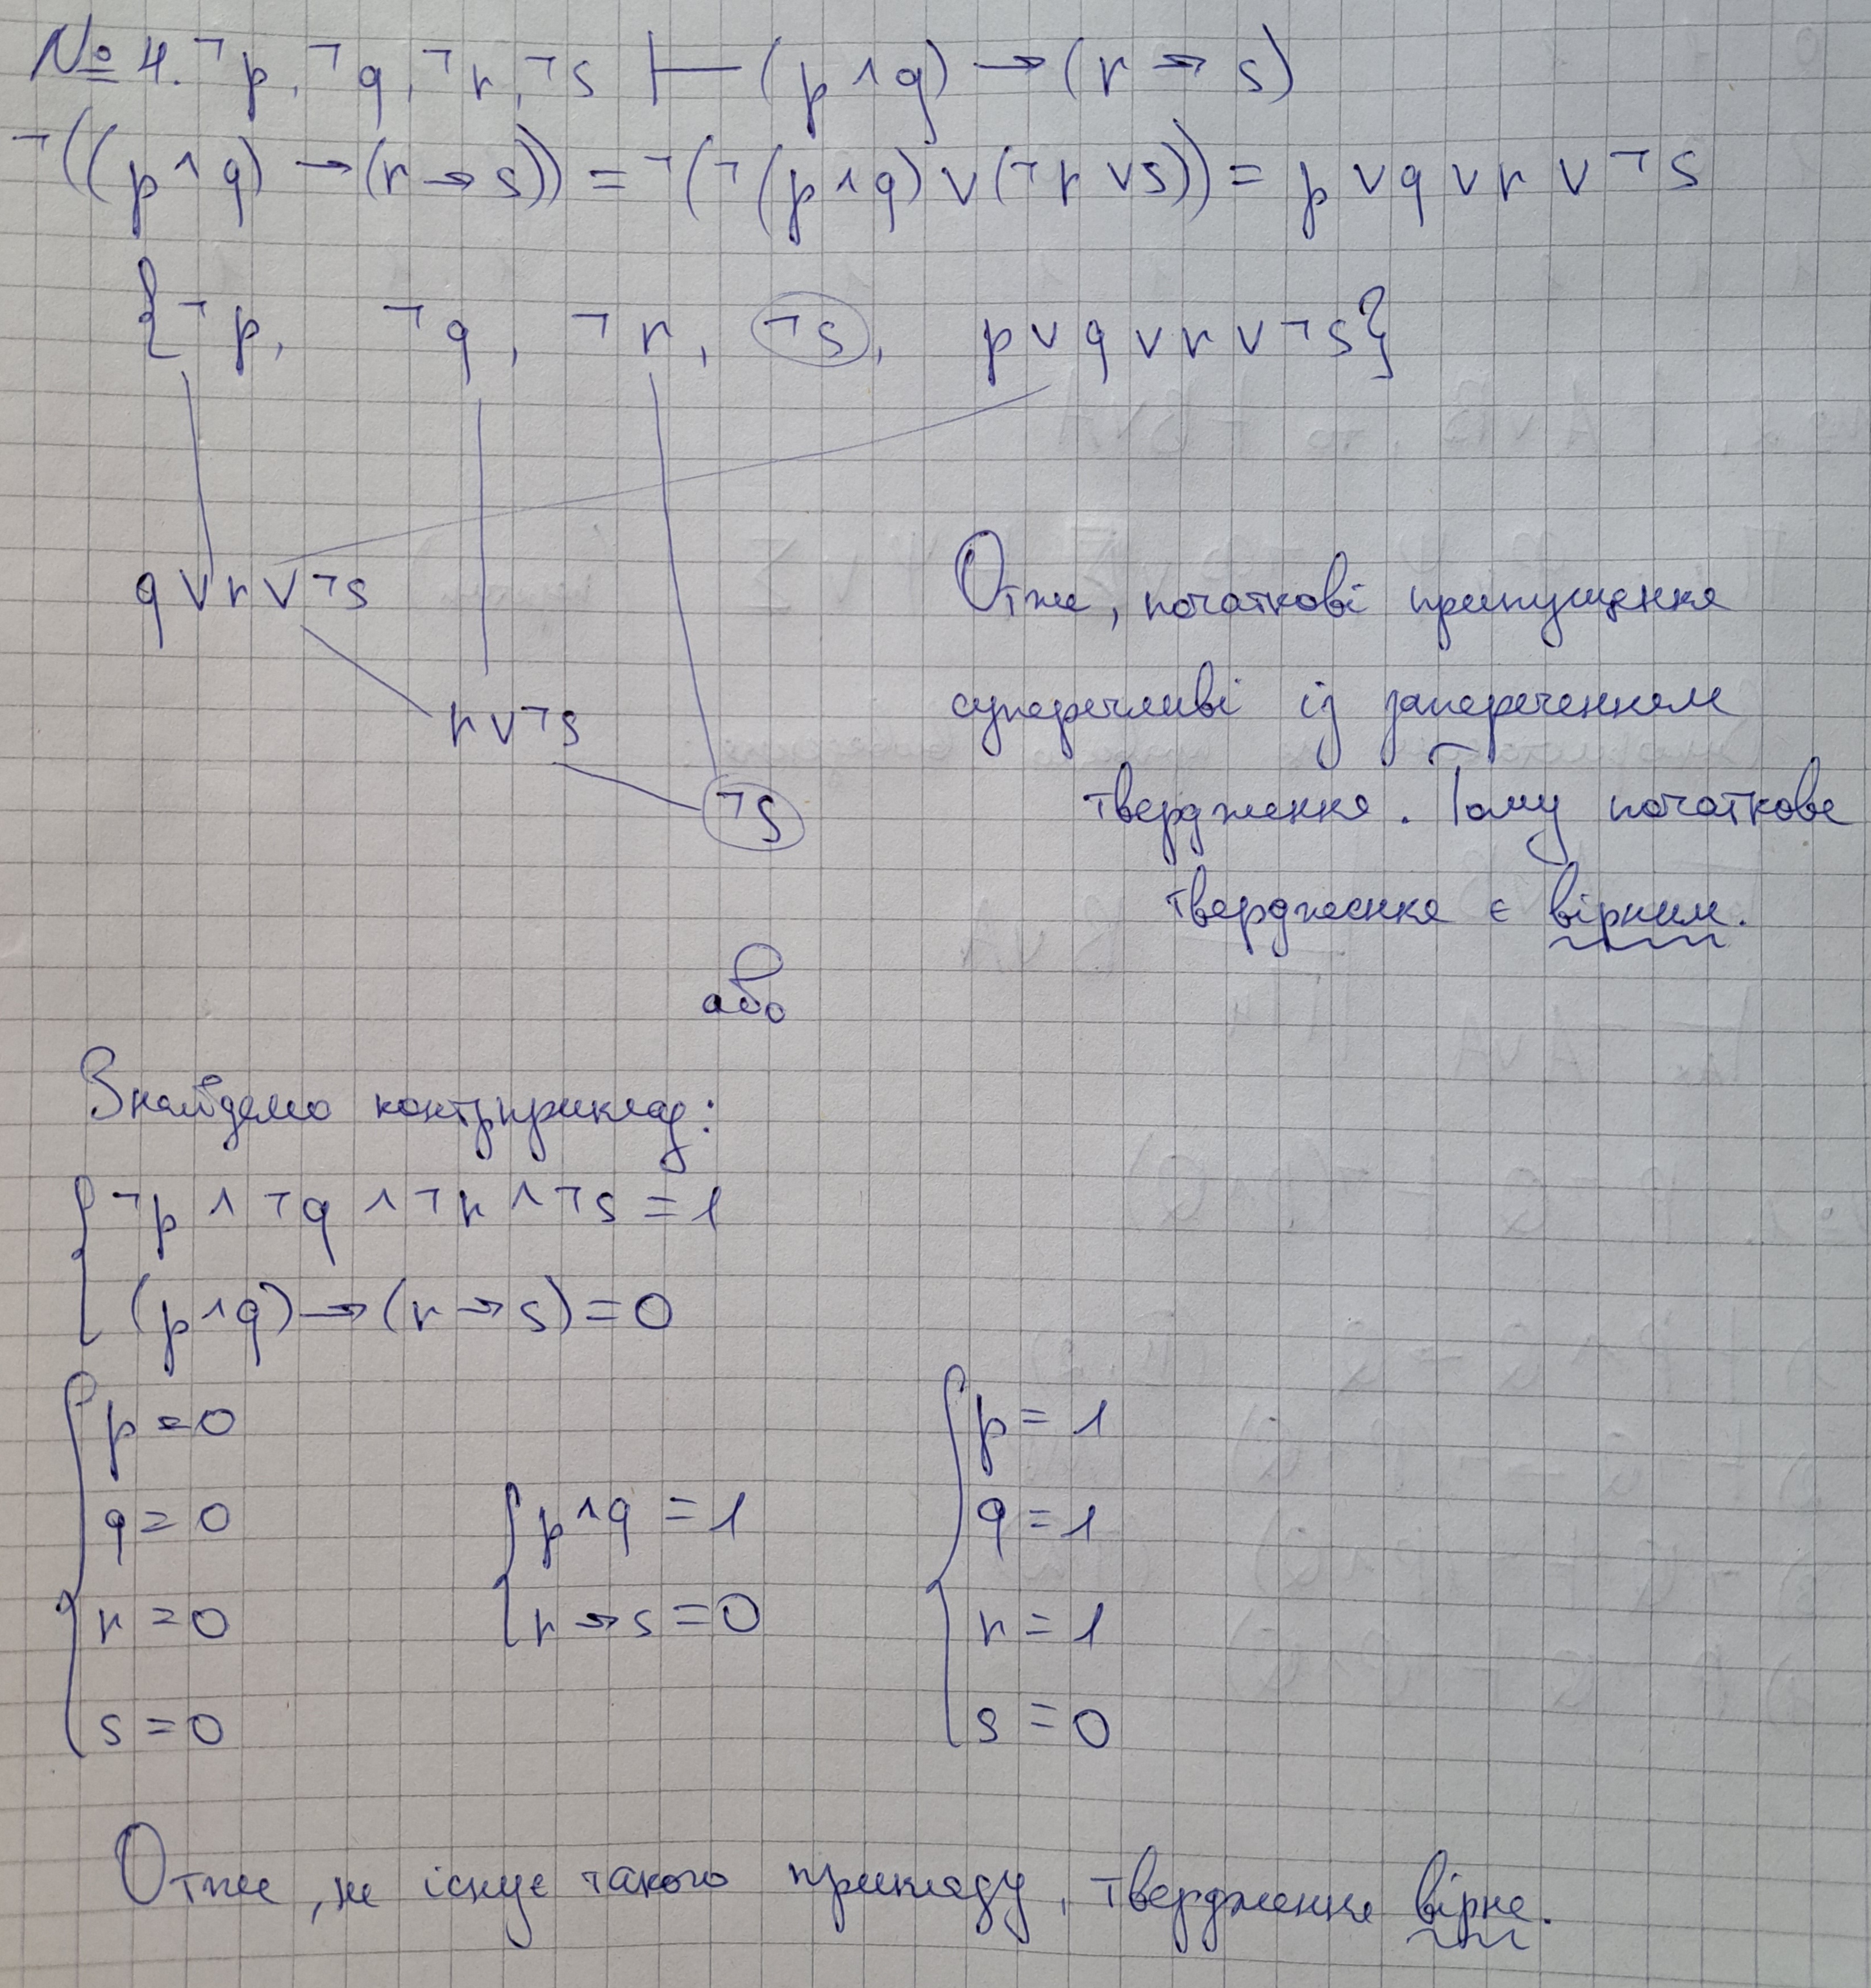 № 4. ¬p, ¬q, ¬r, ¬s ⊢ (p ∧ q) → (r → s)
¬((p ∧ q) → (r → s)) = ¬(¬(p ∧ q) ∨ (¬r ∨ s)) = p ∨ q ∨ r ∨ ¬s
{¬p, ¬q, ¬r, ¬s, p ∨ q ∨ r ∨ ¬s}
q ∨ r ∨ ¬s
r ∨ ¬s
¬s
Отже, початкові припущення
суперечливі із запереченням
твердження. Тому початкове
твердження є вірним.
або
Знайдемо контрприклад:
¬p ∧ ¬q ∧ ¬r ∧ ¬s = 1
(p ∧ q) → (r → s) = 0
p = 0
q = 0
r = 0
s = 0
p ∧ q = 1
r → s = 0
p = 1
q = 1
r = 1
s = 0
Отже, не існує такого прикладу, твердження вірне.